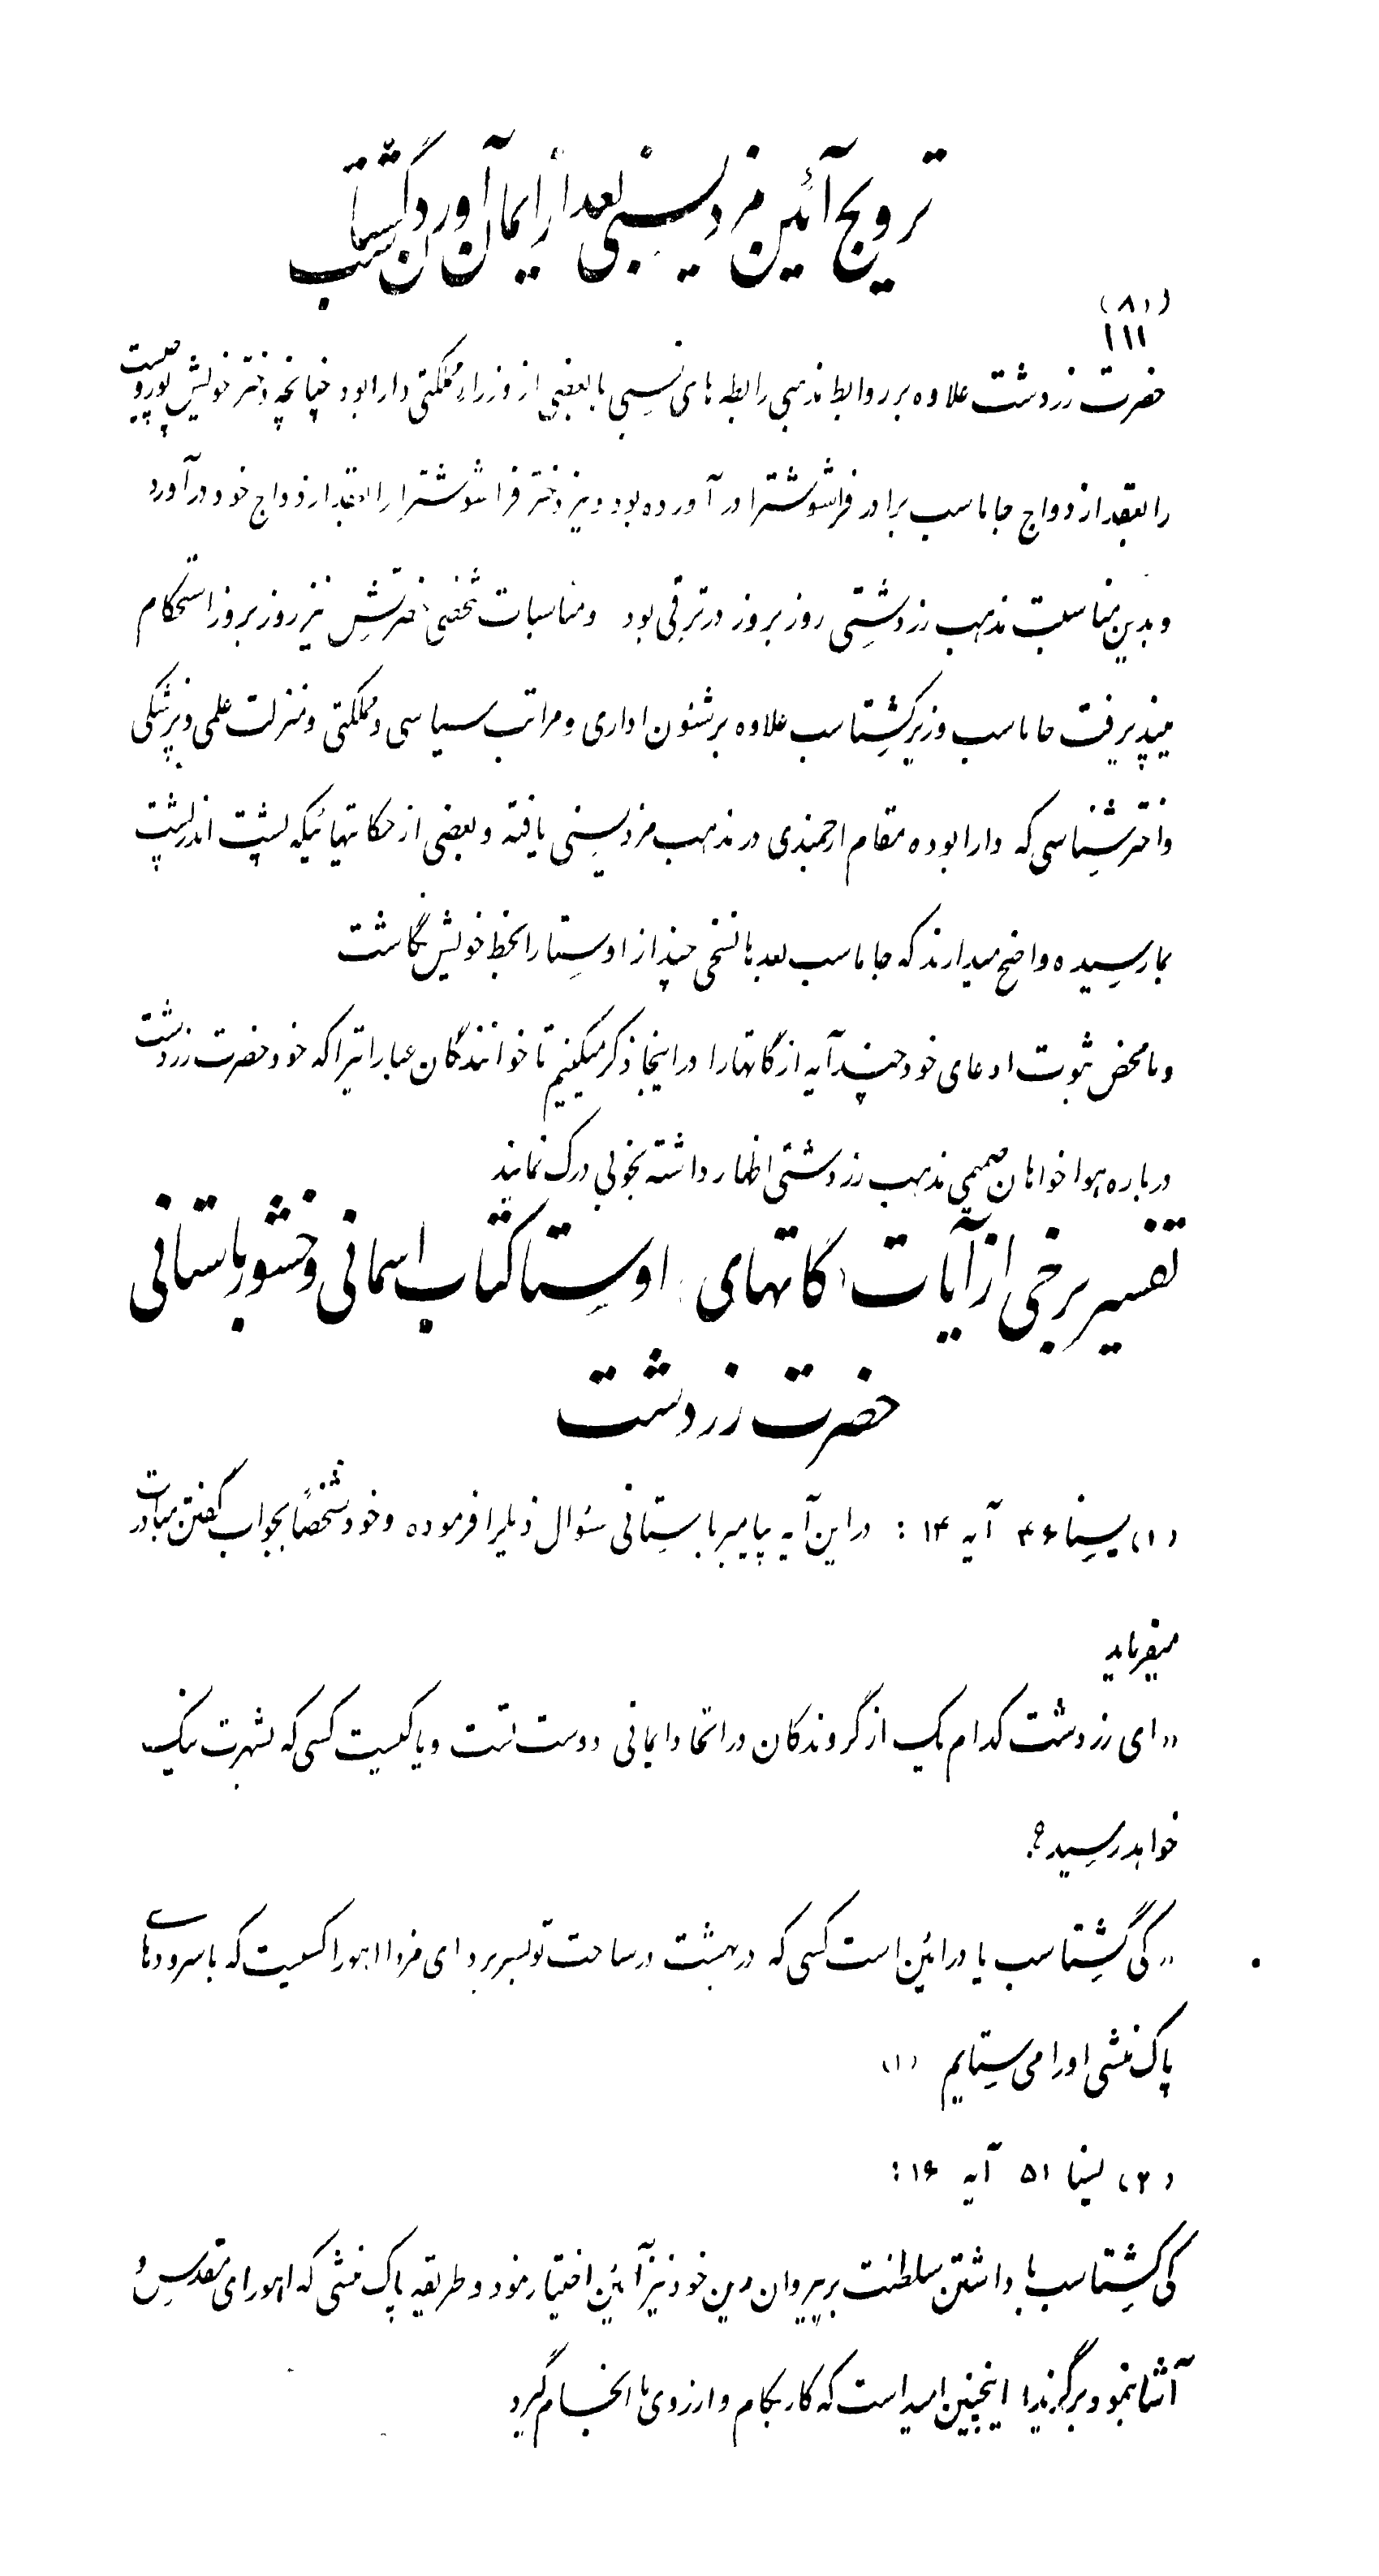 ترویج آئین مزدیسنی بعد از ایمان آوردن گشتاسب
(۸۱)
۱۱۱
حضرت زردشت علاوه بر روابط مذهبی رابطه های نسبی با بعضی از وزراء مملکتی دارا بود چنانچه دختر خویش پوروچیست
را بعقد ازدواج جاماسب برادر فراشوشترا در آورده بود و نیز دختر فراشوشترا را بعقد ازدواج خود در آورد
و بدین مناسبت مذهب زردشتی روز بروز در ترقی بود و مناسبات شخصی حضرتش نیز روز بروز استحکام
میپذیرفت جاماسب وزیر گشتاسب علاوه بر شئون اداری و مراتب سیاسی و مملکتی و منزلت علمی و پزشکی
و اخترشناسی که دارا بوده مقام ارجمندی در مذهب مزدیسنی یافته و بعضی از حکایتهائیکه پشت اندر پشت
بما رسیده واضح میدارند که جاماسب بعدها نسخی چند از اوستا را بخط خویش نگاشت
و ما محض ثبوت ادعای خود چند آیه از گاتها را در اینجا ذکر میکنیم تا خوانندگان عباراتیرا که خود حضرت زردشت
درباره هواخواهان صمیمی مذهب زردشتی اظهار داشته بخوبی درک نمایند
تفسیر برخی از آیات گاتهای اوستا کتاب اسمانی وخشور باستانی
حضرت زردشت
(۱) یسنا ۴۶ آیه ۱۴ : در این آیه پیامبر باستانی سئوال ذیلرا فرموده و خود شخصاً بجواب گفتن مبادرت
میفرماید
«ای زردشت کدام یک از گروندگان در اتحاد ایمانی دوست تست و یا کیست کسی که بشهرت نیک
خواهد رسید؟
«کی گشتاسب یا در ائین است کسی که در بهشت در ساحت تو بسر برد ای مزدا اهورا کسیست که با سرودهای
پاک منشی او را می ستایم (۱)
(۲) یسنا ۵۱ آیه ۱۶ :
کی گشتاسب با داشتن سلطنت بر پیروان دین خود نیز آئین اختیار نمود و طریقه پاک منشی که اهورای مقدس و
آشا بنمود برگزیدا اینچنین امید است که کار بکام و ارزوی ما انجام گیرد